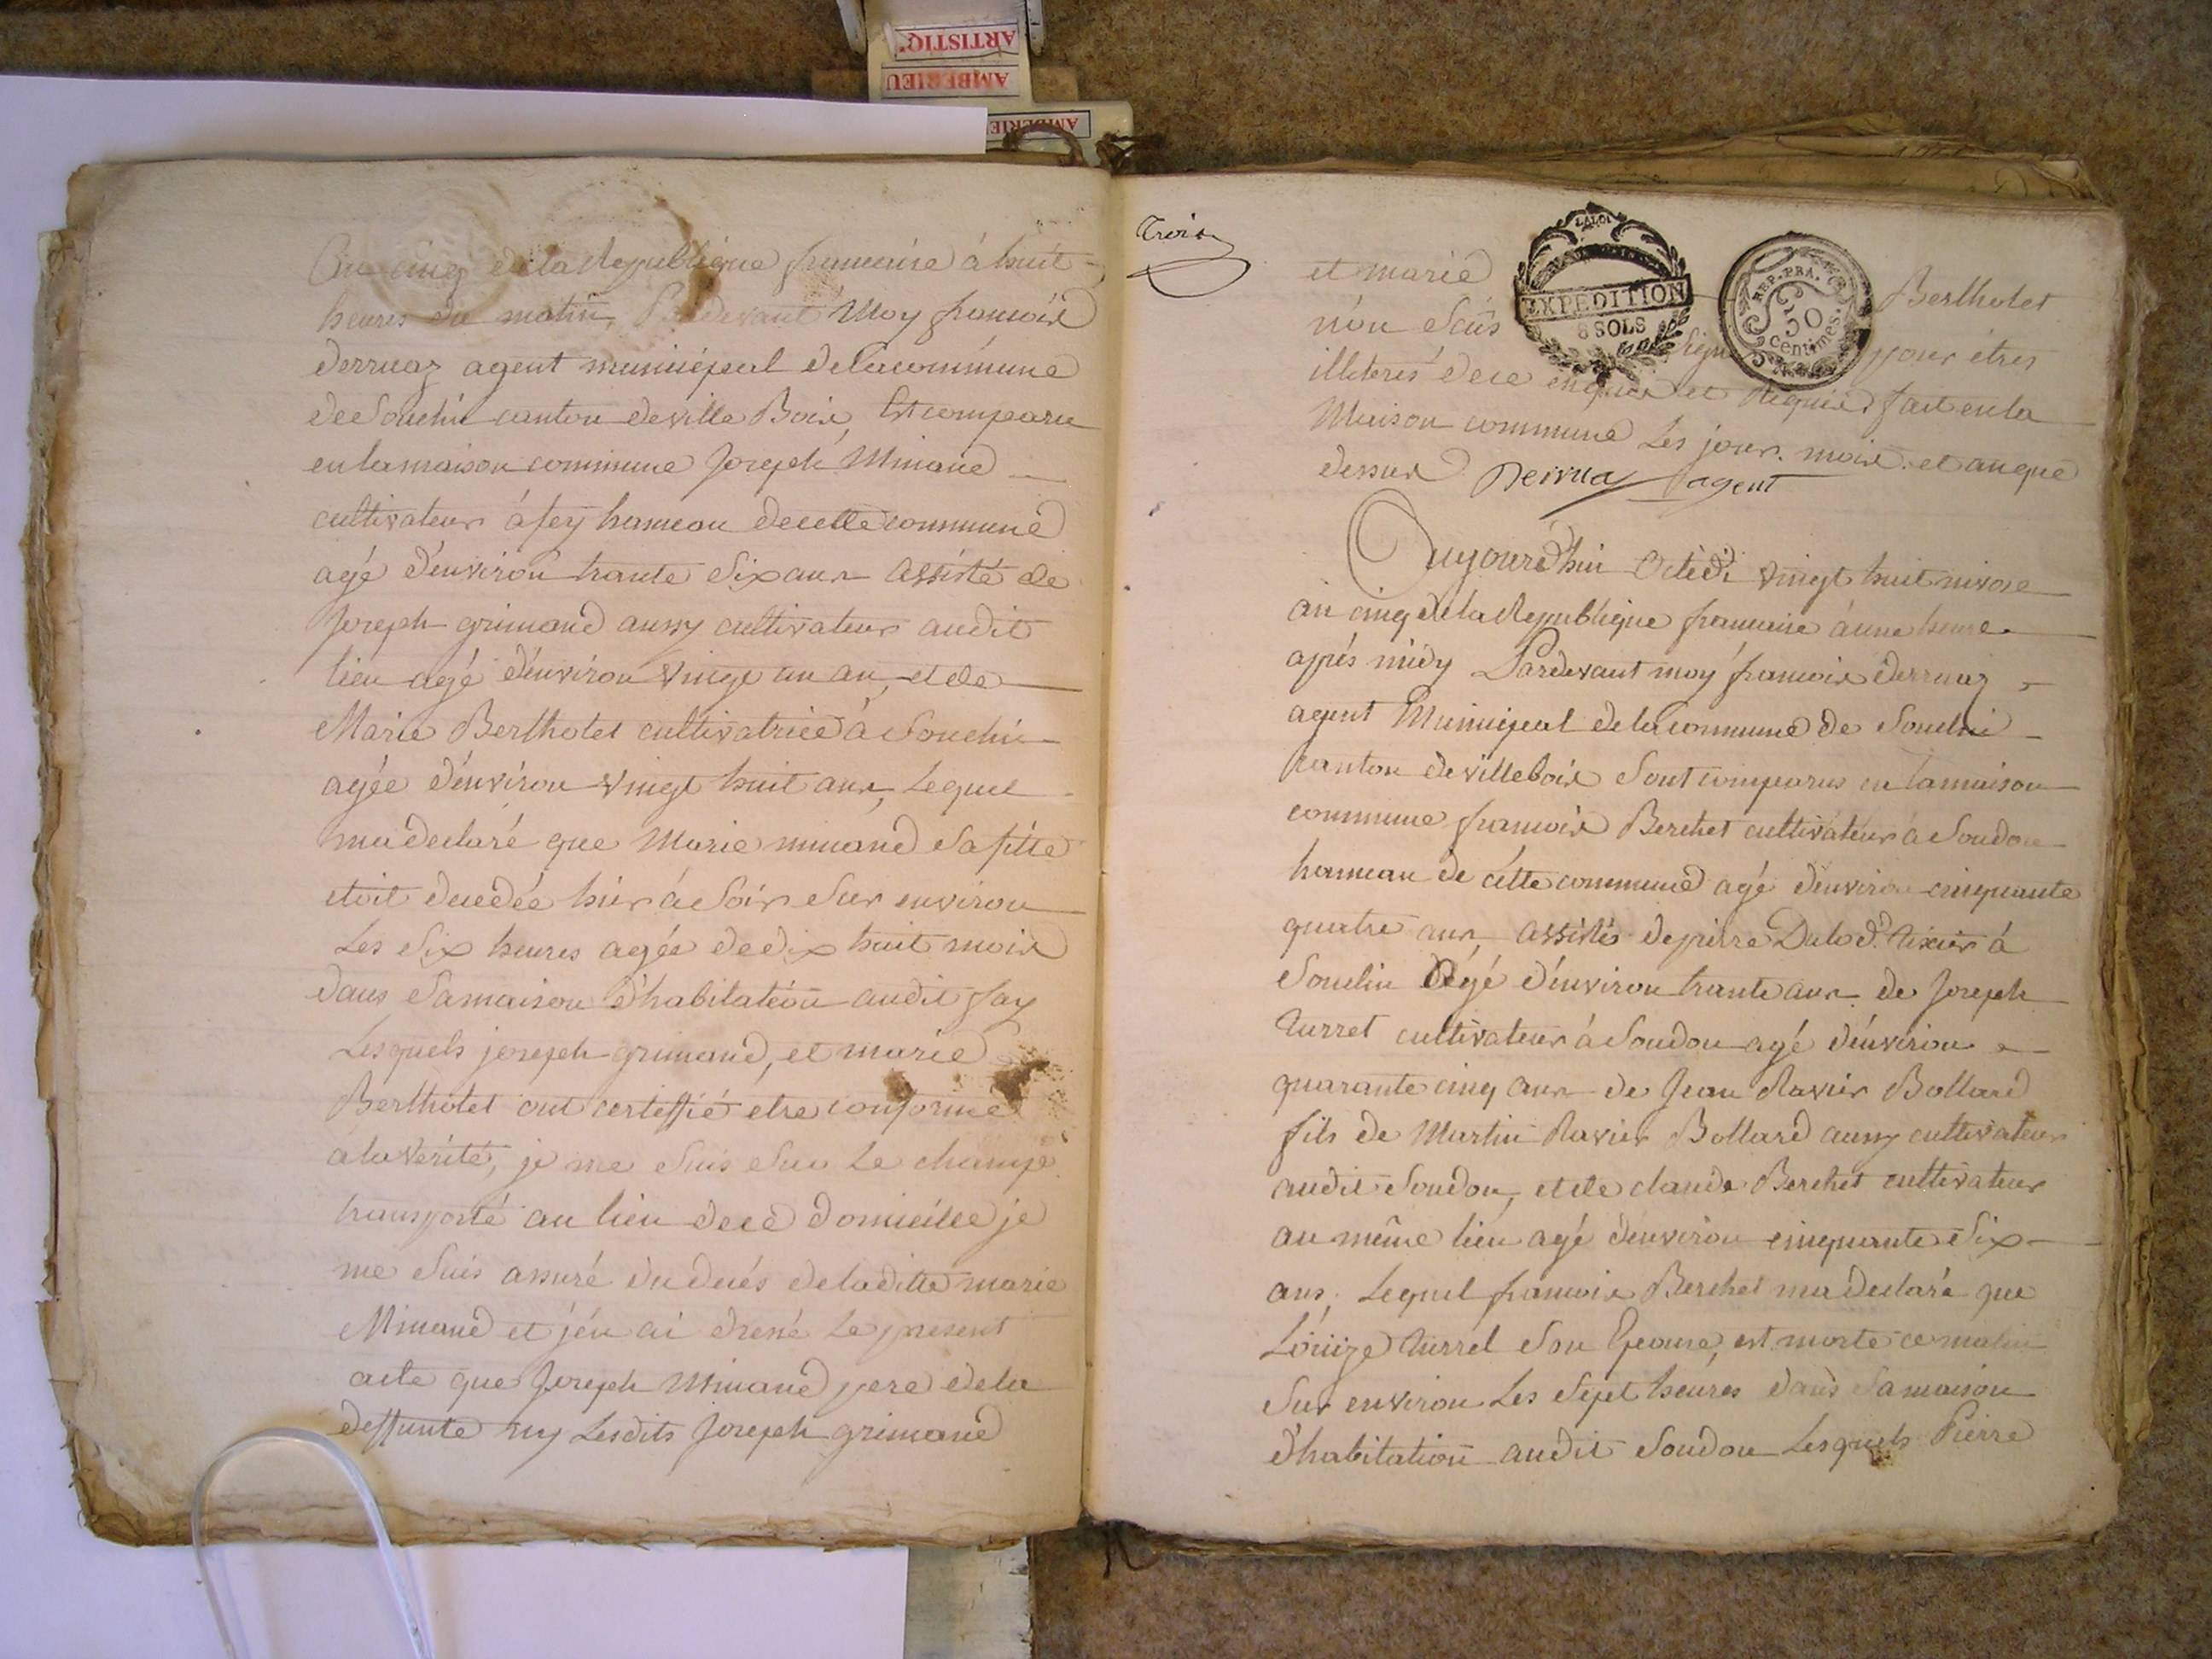 ARTISTIQ'
AMBERIEU
AMBERIE
an cinq de la Republique francaise à huit
heures du matin, Pardevant Moy francois
derruaz agent municipal de la commune
de Souclin canton de ville Bois, Est comparu
en la maison commune Joseph Minand
cultivateur à fey hameau de cette commune
agé d'environ trante Six ans assisté de
Joseph grimand aussy cultivateur audit
lieu agé d'environ vingt un an, et de
Marie Bertholet cultivatrice à Souclin
agée d'environ vingt huit ans, Lequel
ma declaré que Marie minand Sa fille
etoit decedée hier à Soir Sur environ
Les Six heures agée de dix huit mois
dans Sa maison d'habitation audit fay
Lesquels joseph grimand, et marie
Bertholet ont certiffié etre conforme
a la verité, je me Suis Sur Le champ
transporté au lieu de ce domicille je
me Suis assuré du decés de la ditte marie
Minand et j'en ai dressé Le present
acte que Joseph Minand pere de la
deffunte ny Lesdits Joseph grimand
Trois
et marie Bertholet
LA LOI
EXPEDITION
6 SOLS
REP. FRA.
50
centimes.
non Sous signé pour étres
illeterés de ce enquis et Requis. fait en la
Maison commune Les jour. mois. et an que
dessus Derruaz agent
Aujourd'hui Octedi vingt huit nivose
an cinq de la Republique francaise à une heure
aprés midy Pardevant moy francois derruaz
agent Municipal de la commune de Souclin
canton de villebois Sont comparus en la maison
commune francois Berchet cultivateur à Soudon
hameau de cette commune agé d'environ cinquante
quatre ans, assistés de pierre à
Souclin Agé d'environ trante ans de Joseph
turret cultivateur à Soudon agé d'environ
quarante cinq ans de Jean Ravier Bollard
fils de Martin Ravier Bollard aussy cultivateur
audit Soudon, et de claude Berchet cultivateur
au même lieu agé d'environ cinquante Six
ans, Lequel francois Berchet ma declaré que
Louize turrel Son Epouse, est morte ce matin
Sur environ Les Sept heures dans Sa maison
d'habitation audit Soudon Lesquels Pierre